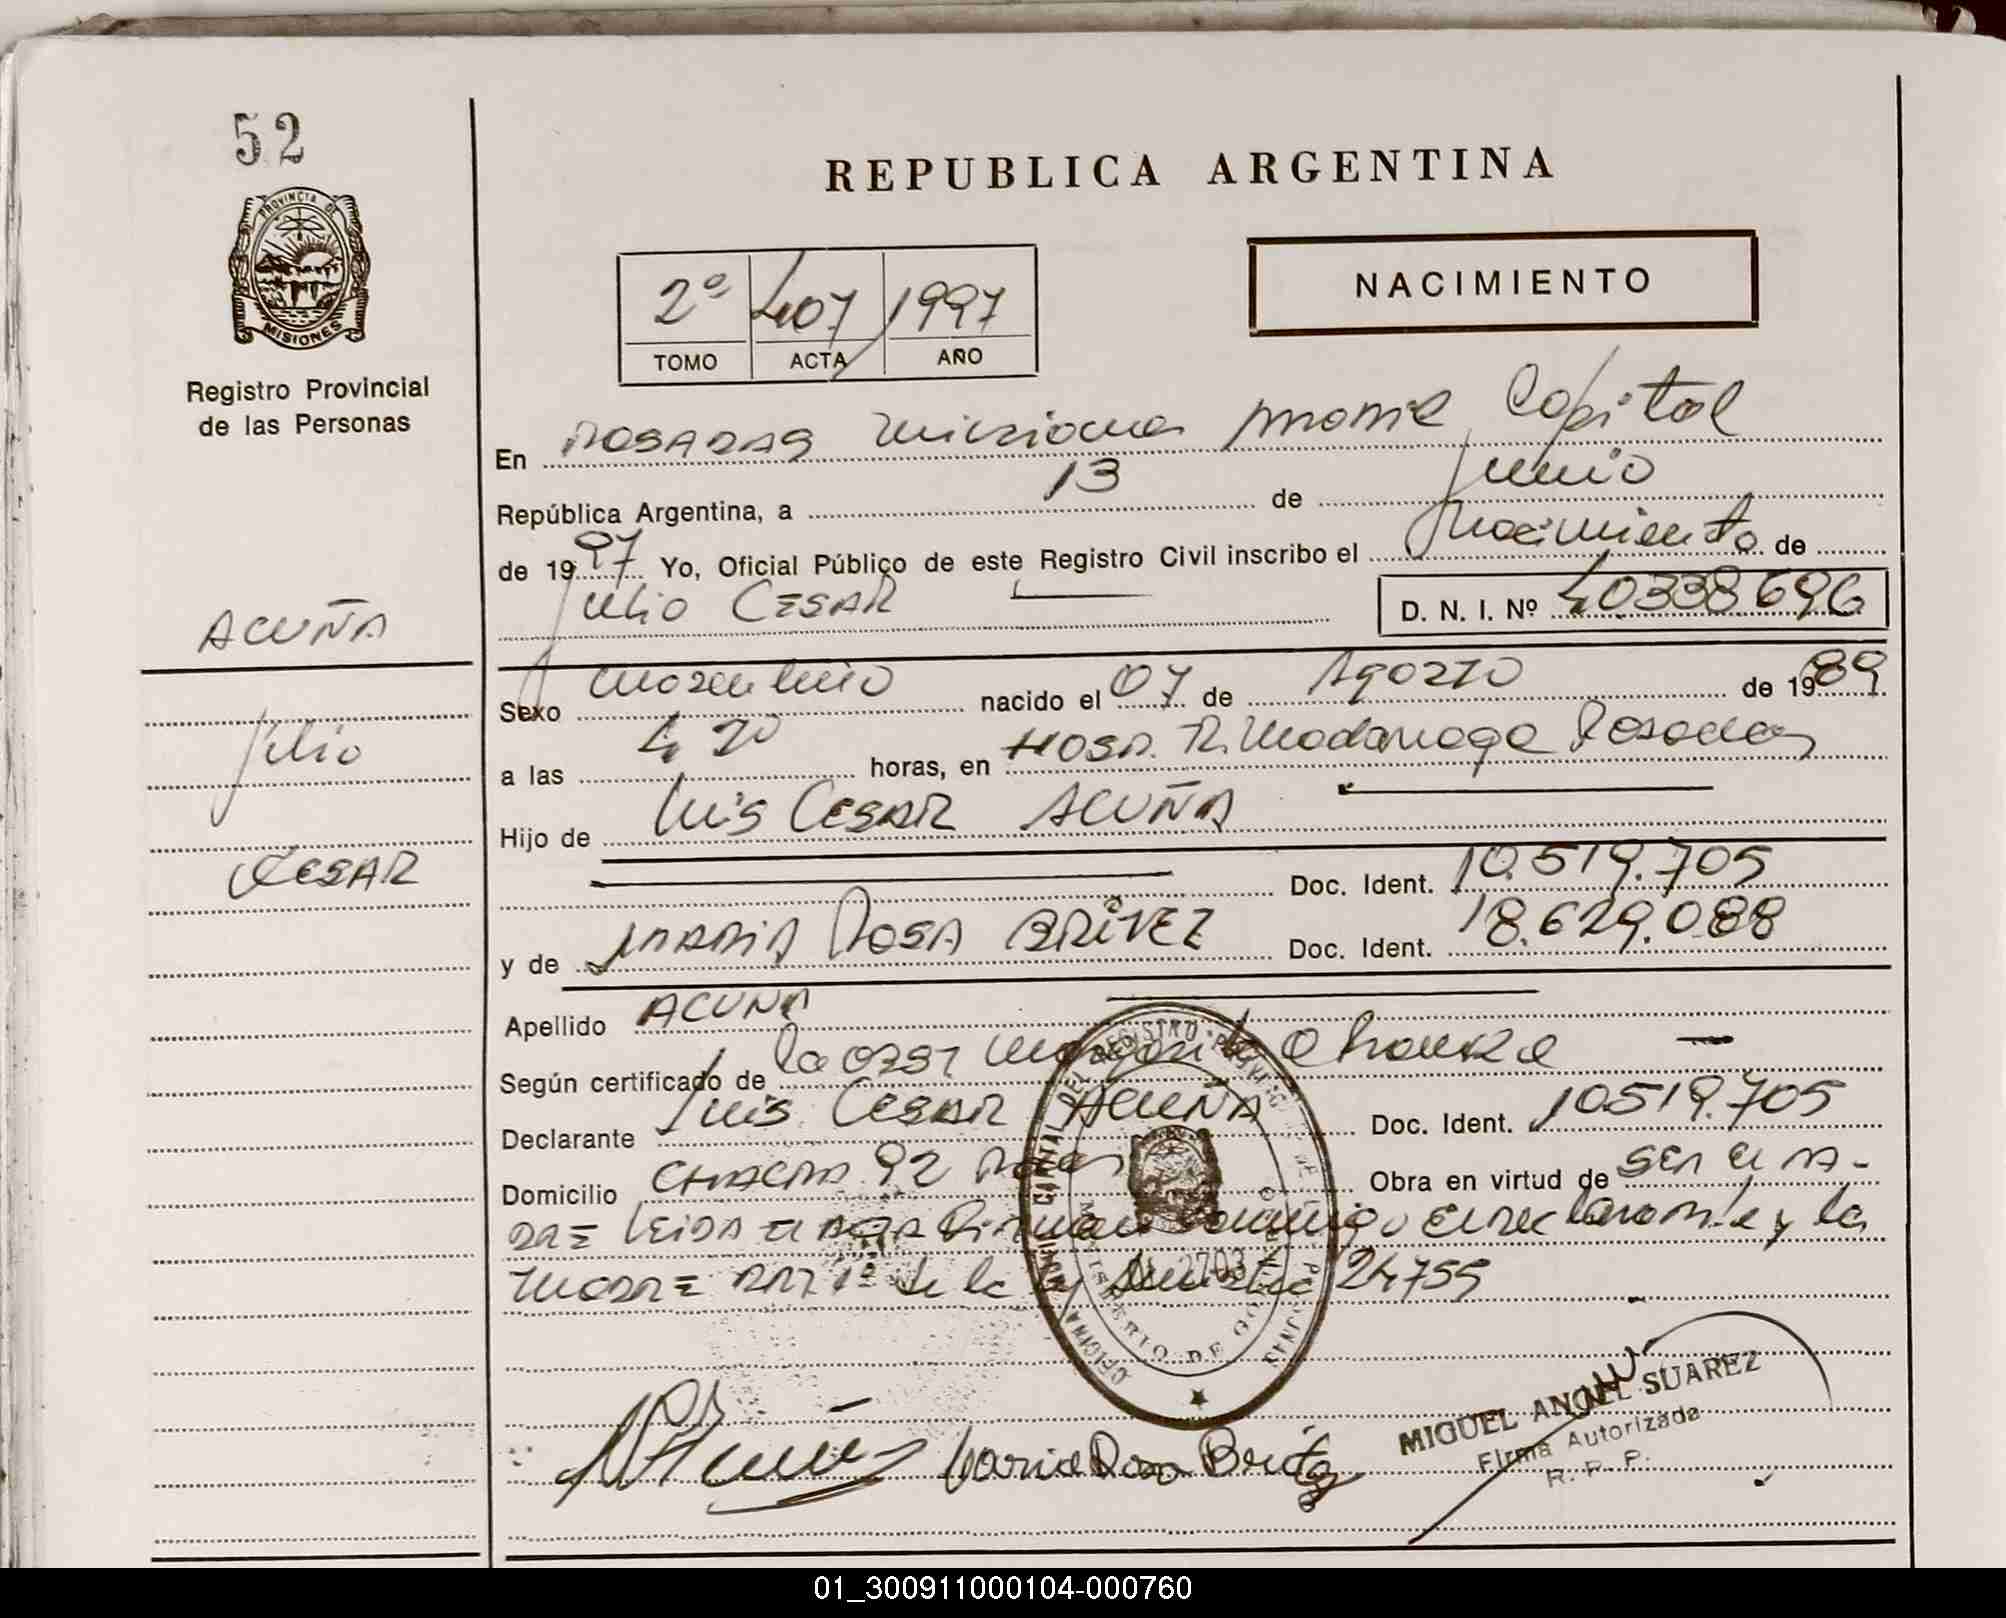 52
REPUBLICA ARGENTINA
PROVINCIA DE
MISIONES
Registro Provincial
de las Personas
2º 407 1997
TOMO ACTA AÑO
NACIMIENTO
En POSADAS Misiones Capital
República Argentina, a 13 de Junio
de 1997 Yo, Oficial Público de este Registro Civil inscribo el Nacimiento de
Julio CESAR D. N. I. Nº 40338696
ACUÑA
Julio
CESAR
Sexo Masculino nacido el 07 de Agosto de 1989
a las 4 20 horas, en HOSP. R. Madariaga Posadas
Hijo de Luis CESAR ACUÑA
Doc. Ident. 10.519.705
y de MARIA ROSA BRITEZ Doc. Ident. 18.629.088
Apellido ACUÑA
Según certificado de la
Declarante Luis CESAR ACUÑA Doc. Ident. 10519.705
Domicilio CHACRA 92 Obra en virtud de SER EL PA-
DRE LEIDA EL ACTA Firman el declarante y la
MADRE ART 1º de la ley 24755
OFICINA MUNICIPAL CAPITAL DEL REGISTRO PROVINCIAL DE LAS PERSONAS
MINISTERIO DE GOBIERNO
2703
Maria Rosa Britez
MIGUEL ANGEL SUAREZ
Firma Autorizada
R. P. P.
01_300911000104-000760